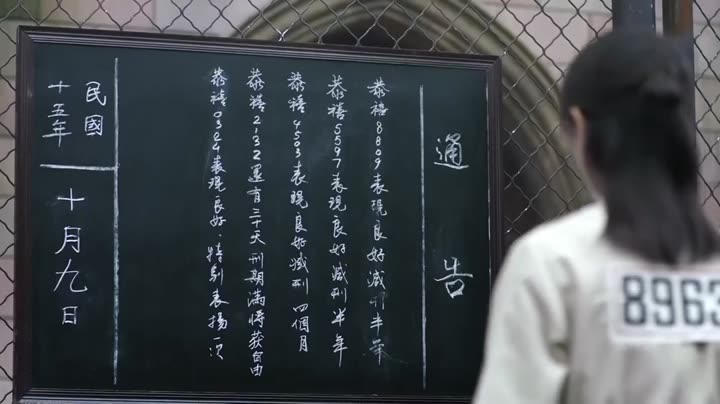 通告
恭禧8809表現良好減刑半年
恭禧5597表現良好.減刑半年
恭禧4503表現良好減刑四個月
恭禧2132還有三十天刑期滿將获自由
恭禧0324表現良好.特别表揚一次
民國
十五年
十月九日
8963